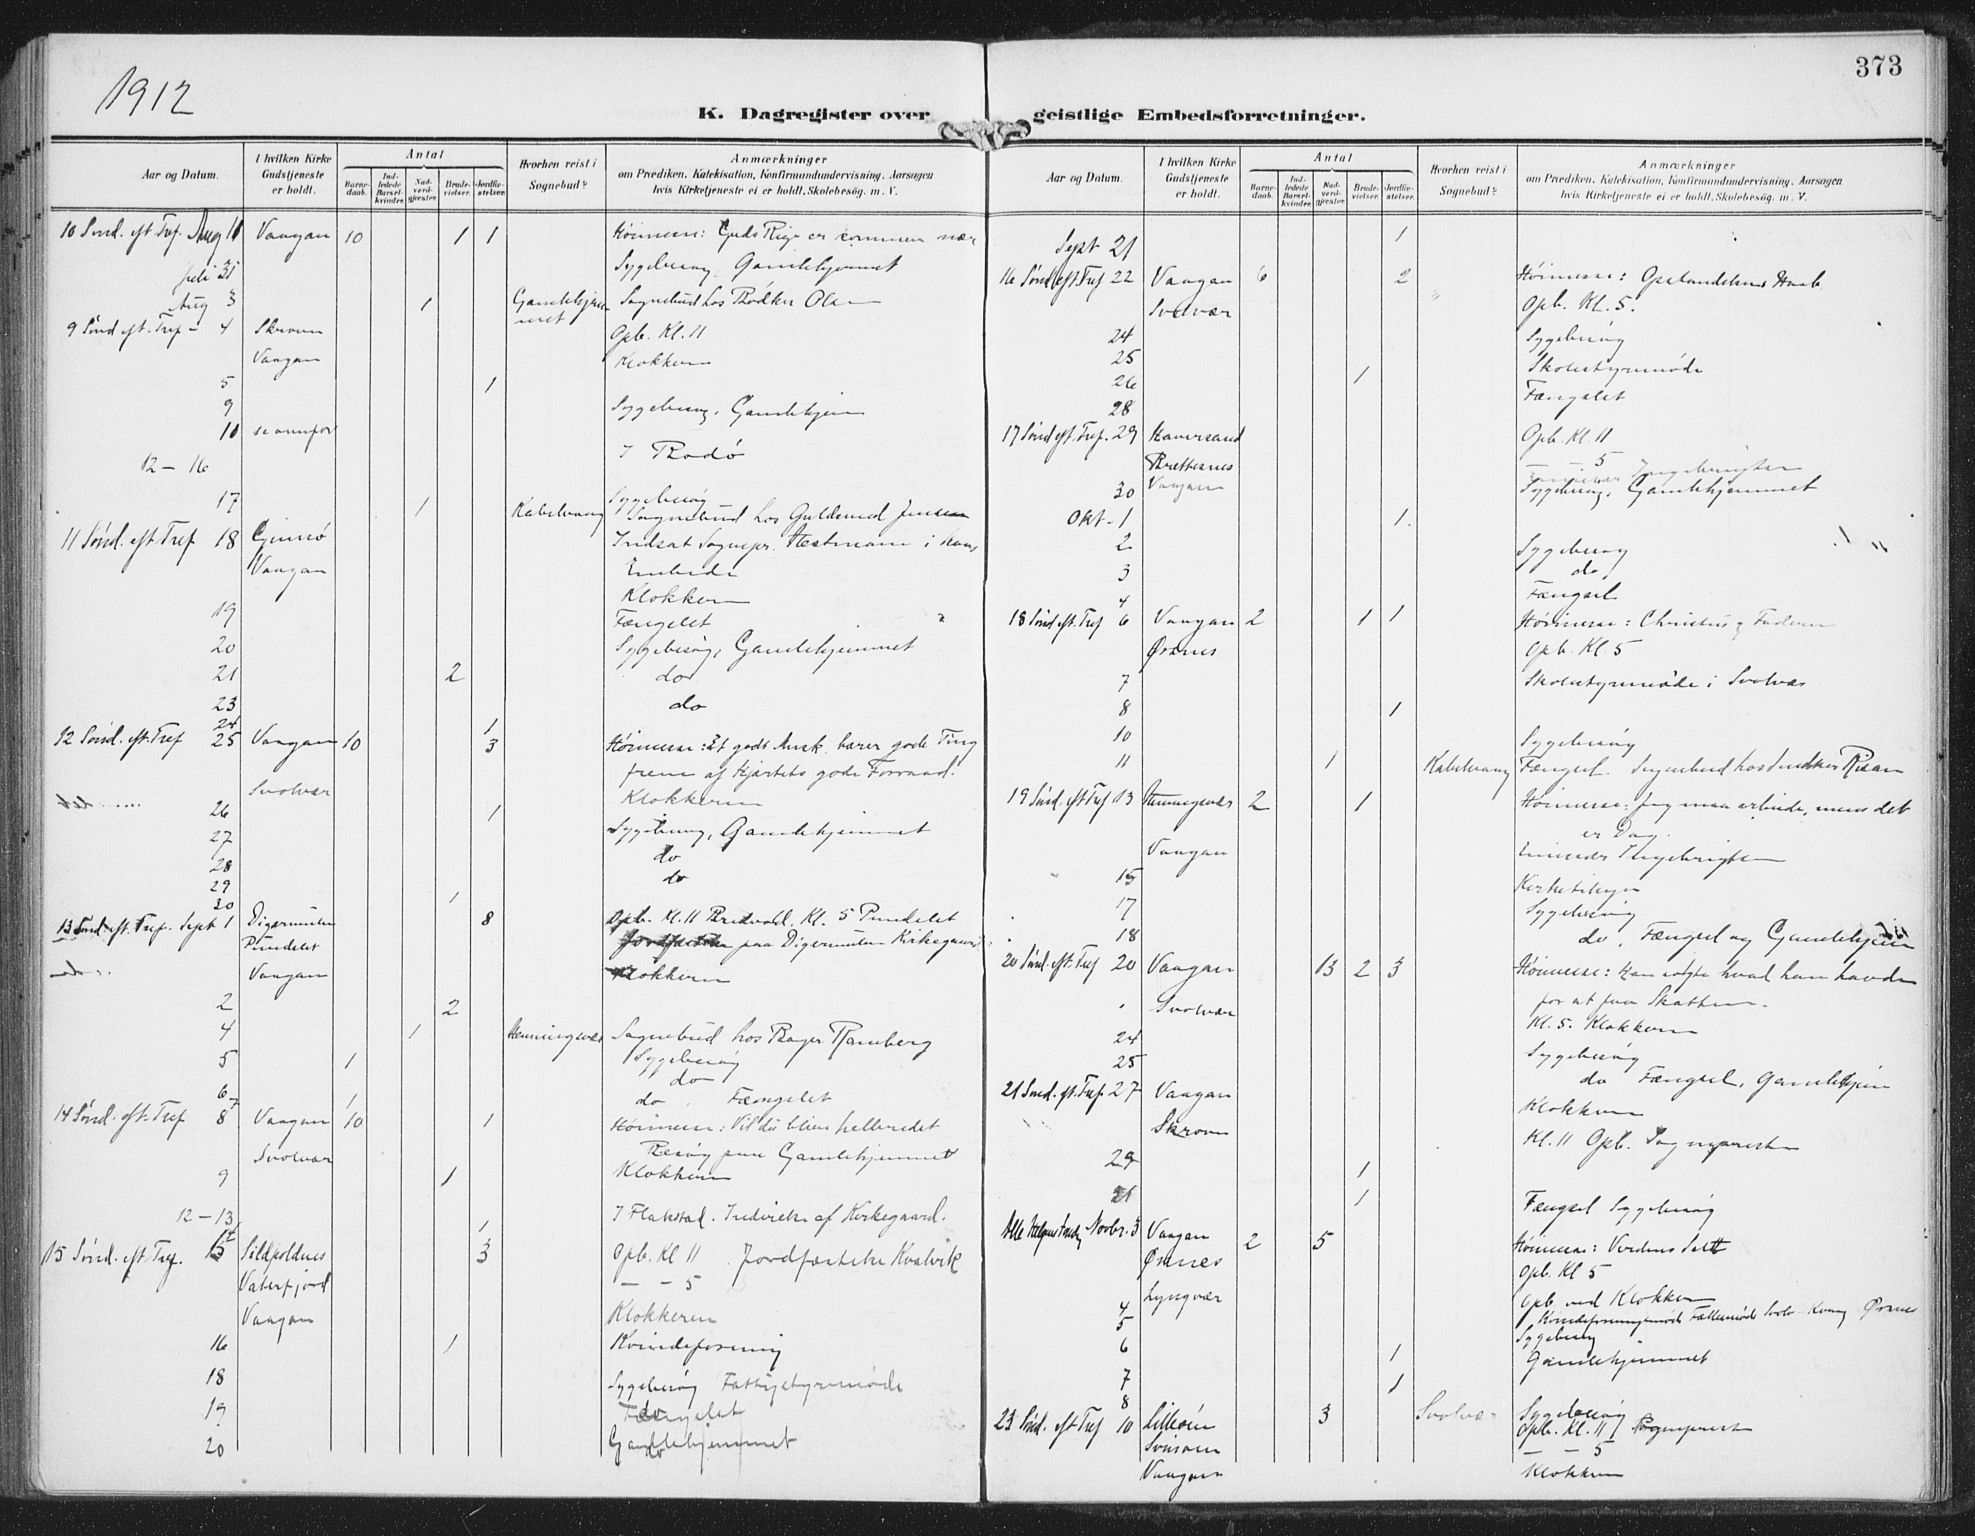 1912
373
K. Dagregister over geistlige Embedsforretninger.
Aar og Datum. I hvilken Kirke Gudstjeneste er holdt. Antal Barnedaab. Indledede Barselkvinder. Nadverdgjester. Brudevielser. Jordfæstelser. Hvorhen reist i Sognebud? Anmærkninger om Prædiken, Katekisation, Konfirmandundervisning, Aarsagen hvis Kirketjeneste ei er holdt, Skolebesøg. m. V.
10 Sønd. eft. Tref. Aug 11 Vaagan 10 1 1 Høimesse: Guds Rige er kommen nær
Juli 31 Sygebesøg, Gamlehjemmet
Aug 3 1 Gamlehjemmet Sognebud hos Olsen
9 Sønd eft. Tref - 4 Skroven Opb. Kl. 11
Vaagan Klokkeren
5 1
9 Sygebesøg, Gamlehjem
11 se ovenfor
12 - 16 I Bodø
17 1 Kabelvaag Sygebesøg
Sognebud hos Guldsmed Jensen
11 Sønd. eft. Tref 18 Gimsø Indsat Sognepr. Hestmann i hans
Vaagan Embede
Klokkeren
19 Fængslet
20 Sygebesøg, Gamlehjemmet
21 2 do
23 do
24 1
12 Sønd. eft. Tref 25 Vaagan 10 3 Høimesse: Et godt Mnsk. bærer gode Ting
frem af Hjertets gode Forraad.
Svolvær Klokkeren
26 1
27 Sygebesøg, Gamlehjemmet
28 do
29 do
30 1
13 Sønd. eft. Tref. Sept 1 Digermulen 8 Opb. Kl. 11 Kl. 5 Pundslet
Pundslet paa Digermulen Kirkegaard
Vaagan Klokkeren
2 2
4 1 Henningsvær Sognebud hos Bager Ramberg
5 1 Sygebesøg
do
6 do Fængslet
7 1
14 Sønd. eft. Tref 8 Vaagan 10 1 Høimesse: Vil du blive helbredet
Besøg paa Gamlehjemmet
Svolvær Klokkeren
9 1
12 - 13 I Flakstad. Indvielse af Kirkegaard.
14 1
15 Sønd. eft. Tref. 15 Sildpoldnes 3 Opb. Kl 11 Jordfæstelse Kvalvik
Vaterfjord - - 5
Vaagan Klokkeren
16 1 Kvindeforening
18 Sygebesøg Fattigstyremøde
19 Fængslet
20 Gamlehjemmet
Aar og Datum. I hvilken Kirke Gudstjeneste er holdt. Antal Barnedaab. Indledede Barselkvinder. Nadverdgjester. Brudevielser. Jordfæstelser. Hvorhen reist i Sognebud? Anmærkninger om Prædiken, Katekisation, Konfirmandundervisning, Aarsagen hvis Kirketjeneste ei er holdt, Skolebesøg. m. V.
Sept 21 1
16 Sønd eft. Tref 22 Vaagan 6 2 Høimesse: Opstandelsens Haab
Svolvær Opb. Kl. 5.
24 Sygebesøg
25 Skolestyremøde
26 1 Fængslet
28
17 Sønd eft. Tref. 29 Haversand Opb. Kl. 11
Brettesnes 5
Vaagan Ingebrigtsen
30 Sygebesøg, Gamlehjemmet
Okt - 1 1
2 Sygebesøg
3 do
4 Fængsel
18 Sønd eft. Tref 6 Vaagan 2 1 1 Høimesse: Christus og Faderen
Ørsnes Opb. Kl. 5
7 Skolestyremøde i Svolvær
8 1
10 Sygebesøg
11 1 Kabelvaag Fængsel. Sognebud hos
19 Sønd. eft Tref 13 Henningsvær 2 1 Høimesse: Jeg maa arbeide, mens det
er Dag.
Vaagan Ingebrigtsen
15
17 Sygebesøg
18 do, Fængsel og Gamlehjem
20 Sønd. eft. Tref 20 Vaagan 13 2 3 Høimesse: Han solgte hvad han havde
for at faa Skatten.
Svolvær Kl. 5. Klokkeren
24 Sygebesøg
25 do Fængsel, Gamlehjem
21 Sønd. eft. Tref. 27 Vaagan Klokkeren
Skroven Kl. 11 Opb. Sogneprest
29 1
31 1 Fængsel Sygebesøg
Alle Helgens Søndg Novbr. 3 Vaagan 2 5 Høimesse: Verdens Salt
Ørsnes Opb. Kl 5
Lyngvær Opb. ved Klokkeren
4
5 Sygebesøg
6 1 Gamlehjemmet
7 1
8 Svolvær Sygebesøg
23 Sønd. eft Tref 10 Lilleøen 3 Opb. Kl. 11 Sogneprest
- - 5
Vaagan Klokkeren